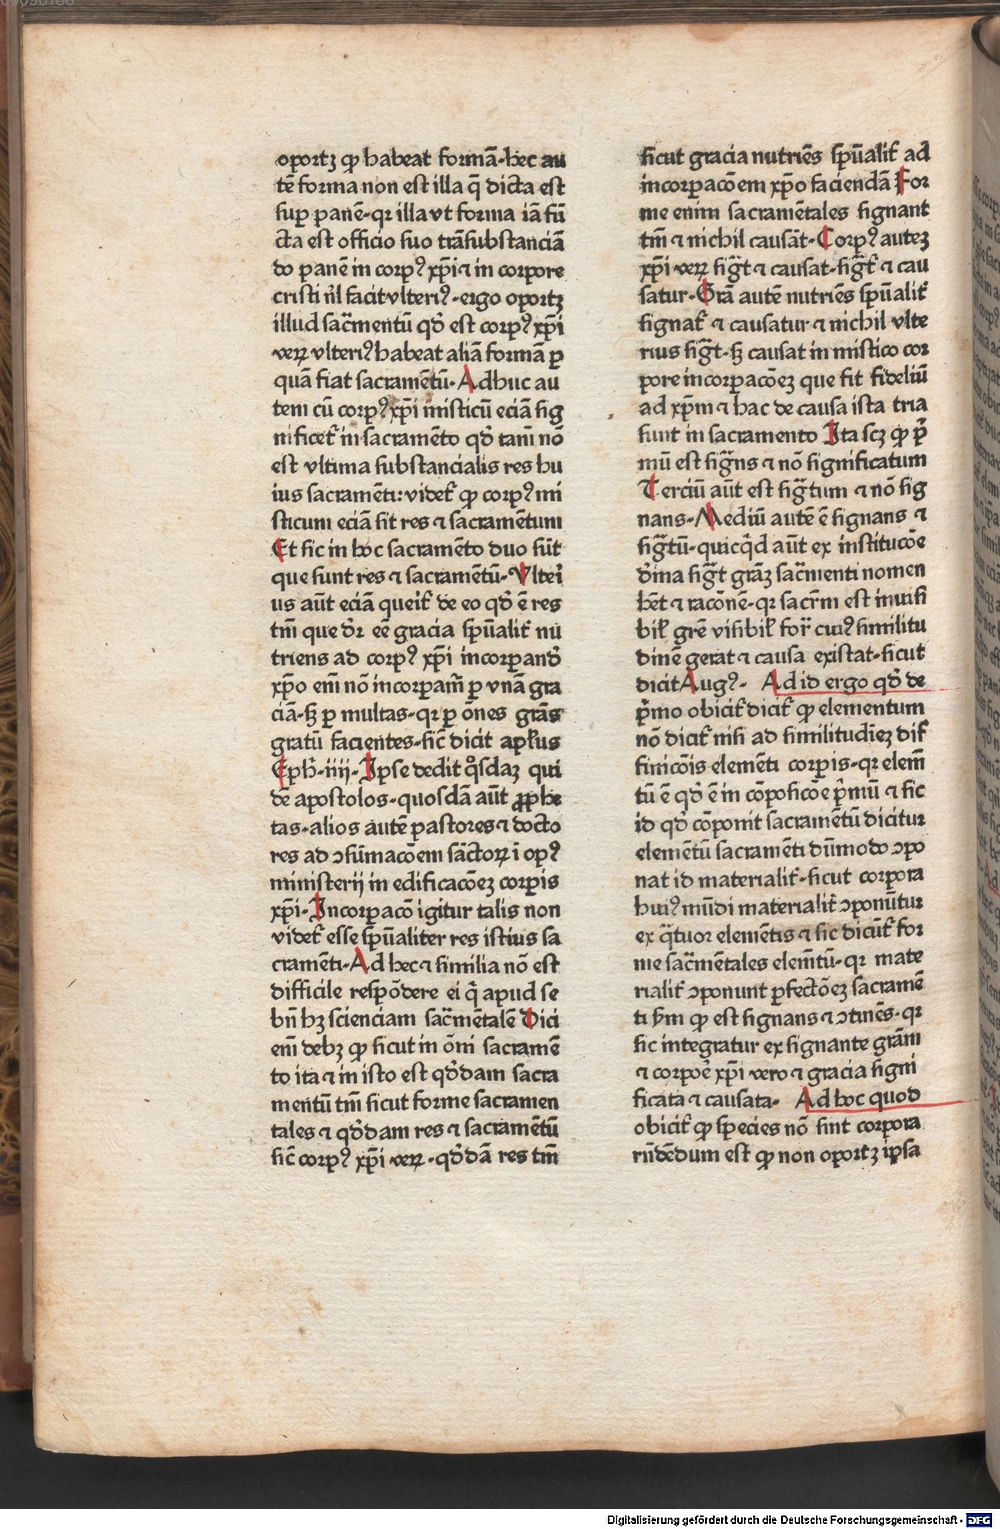 oportꝫ ꝙ habeat formā·hec au
tē forma non est illa q̄ dicta est
sup̱ panē·qꝛ illa vt forma iā fū
cta est officio suo trāsubstanciā
do panē in corpꝰ xp̄i ⁊ in corpore
cristi nl̄ facit vlteriꝰ·ergo oportꝫ
illud sac̄mentū qd̄ est corpꝰ xp̄i
veꝝ vlteriꝰ habeat aliā formā ꝑ
quā fiat sacramētū·Adhuc au
tem cū corpꝰ xp̄i misticū eciā sig
nificet̄ in sacramēto qd̄ tam̄ nō
est vltima substancialis res hu
ius sacramēti: videt̄ ꝙ corpꝰ mi
sticum eciā sit res ⁊ sacramētum
Et sic in hoc sacramēto duo sūt
que sunt res ⁊ sacramētū·Vlteri
us aūt eciā querit̄ de eo qd̄ ē res
tm̄ que dr̄ eē gracia spūalit̄ nu
triens ad corpꝰ xp̄i incorpandō
xp̄o em̄ nō incorpam̄ ꝑ vnā gra
ciā·sꝫ ꝑ multas·qꝛ ꝑ ōnes grās
gratū facientes·sic̄ dicit apl̄us
Eph̄·iiij·Ipse dedit qͦsdaꝫ qui
dē apostolos·quosdā aūt ꝓphe
tas·alios autē pastores ⁊ docto
res ad ↄsūmacōem sāctoꝝ ī opꝰ
ministerij in edificacōeꝫ corpis
xp̄i·Incorpacō igitur talis non
videt̄ esse spūaliter res istius sa
cramēti·Ad hec ⁊ similia nō est
difficile respōdere ei q̄ apud se
bn̄ hꝫ scienciam sac̄mētalē Dici
em̄ debꝫ ꝙ sicut in ōni sacramē
to ita ⁊ in isto est qd̄dam sacra
mentū tm̄ sicut forme sacramen
tales ⁊ qd̄dam res ⁊ sacramētū
sic̄ corpꝰ xp̄i veꝝ·qd̄dā res tm̄
sicut gracia nutriēs spūalit̄ ad
incorpacōem xp̄o faciendā For
me enim sacramētales signant
tm̄ ⁊ nichil causāt·Corpꝰ auteꝫ
xp̄i veꝝ sigt̄ ⁊ causat·sigt̄ ⁊ cau
satur·Grā autē nutriēs spūalit̄
signat̄ ⁊ causatur ⁊ nichil vlte
rius sigt̄·sꝫ causat in mistico cor
pore incorpacōeꝫ que fit fideliū
ad xp̄m ⁊ hac de causa ista tria
sunt in sacramento Ita scꝫ ꝙ p̄
mū est sigꝰns ⁊ nō significatum
Terciū aūt est sigtum ⁊ nō sig
nans·Mediū autē ē signans ⁊
sigtū·quicq̄d aūt ex institucōe
dn̄a sigt̄ grāꝫ sac̄menti nomen
hēt ⁊ racōnē·qꝛ sacrm̄ est inuisi
bil̄ grē visibil̄ for̄ cuiꝰ similitu
dinē gerat ⁊ causa existat·sicut
dicit Augꝰ· Ad id ergo qd̄ de
p̄mo obicit̄ dicit̄ ꝙ elementum
nō dicit̄ nisi ad similitudīeꝫ dif
finicōis elemēti corpis·qꝛ elem̄
tū ē qd̄ ē in cōposicōe p̄mū ⁊ sic
id qd̄ cōponit sacramētū dicitur
elemētū sacramēti dūmodo ↄpo
nat id materialit̄·sicut corpora
huiꝰ mūdi materialit̄ ↄponūtur
ex q̄tuor elemētis ⁊ sic dicūt̄ for
me sac̄mētales elem̄tū·qꝛ mate
rialit̄ ↄponunt ꝑfectōeꝫ sacramē
ti ꝙ est signans ⁊ ↄtinēs·qꝛ
sic integratur ex signante grām
⁊ corpoē xp̄i vero ⁊ gracia signi
ficata ⁊ causata· Ad hoc quod
obicit̄ ꝙ species nō sint corpora
rn̄dēdum est ꝙ non oportꝫ ipsa
Digitalisierung gefördert durch die Deutsche Forschungsgemeinschaft - DFG